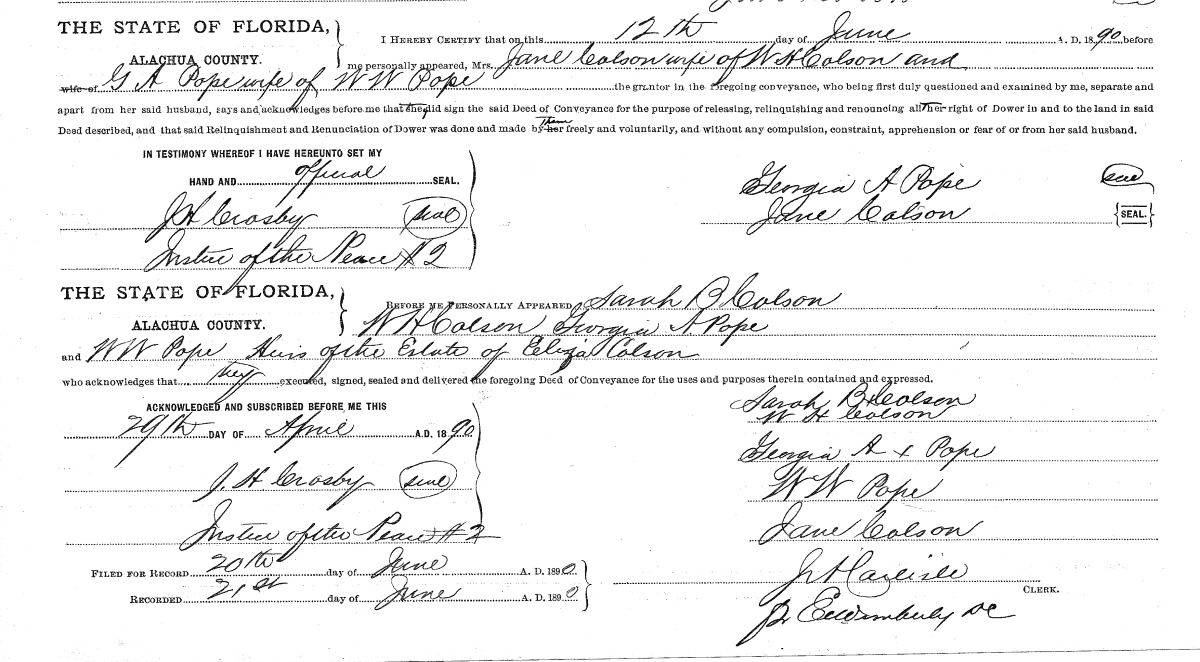 THE STATE OF FLORIDA,
ALACHUA COUNTY.
I HEREBY CERTIFY that on this 12th day of June A. D. 1890, before
me personally appeared, Mrs. Jane Colson wife of W H Colson and
wife of G A Pope wife of W W Pope the grantor in the foregoing conveyance, who being first duly questioned and examined by me, separate and
apart from her said husband, says and acknowledges before me that they did sign the said Deed of Conveyance for the purpose of releasing, relinquishing and renouncing all her right of Dower in and to the land in said
Deed described, and that said Relinquishment and Renunciation of Dower was done and made by her them freely and voluntarily, and without any compulsion, constraint, apprehension or fear of or from her said husband.
IN TESTIMONY WHEREOF I HAVE HEREUNTO SET MY
HAND AND official SEAL.
J H Crosby seal
Justice of the Peace #2
Georgia A Pope seal
Jane Colson SEAL.
THE STATE OF FLORIDA,
ALACHUA COUNTY.
BEFORE ME PERSONALLY APPEARED Sarah B Colson
W H Colson Georgia A Pope
and W W Pope Heirs of the Estate of Eliza Colson
who acknowledges that they executed, signed, sealed and delivered the foregoing Deed of Conveyance for the uses and purposes therein contained and expressed.
ACKNOWLEDGED AND SUBSCRIBED BEFORE ME THIS
29th DAY OF April A.D. 1890
J. H Crosby seal
Justice of the Peace #2
Sarah B Colson
W H Colson
Georgia A x Pope
W W Pope
Jane Colson
FILED FOR RECORD 20th day of June A. D. 1890
RECORDED 21st day of June A. D. 1890
J H Carlisle
CLERK.
Wimberly DC